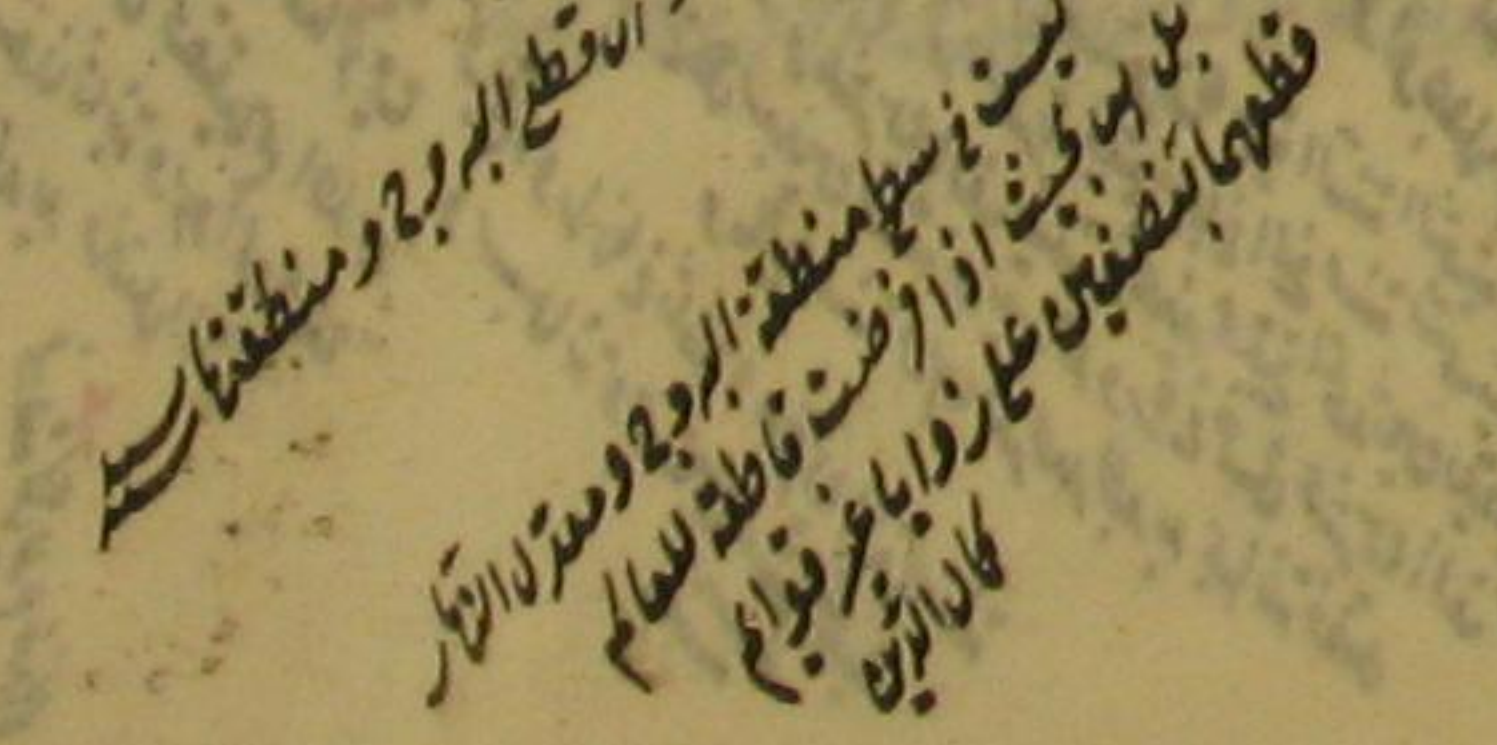 ان قطع البروج ومنطقتها سيد
ليست في سطح منطقة البروج ومعدل النهار
بل هي بحيث اذا فرضت قاطعة للعالم
قطعهما بنصفين على زوايا غير قوايم
كمال الدين